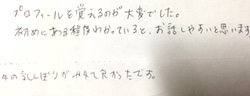 プロフィールを覚えるのが大変でした。
初めにある程度わかっていると、お話しやすいと思います
よかったです。